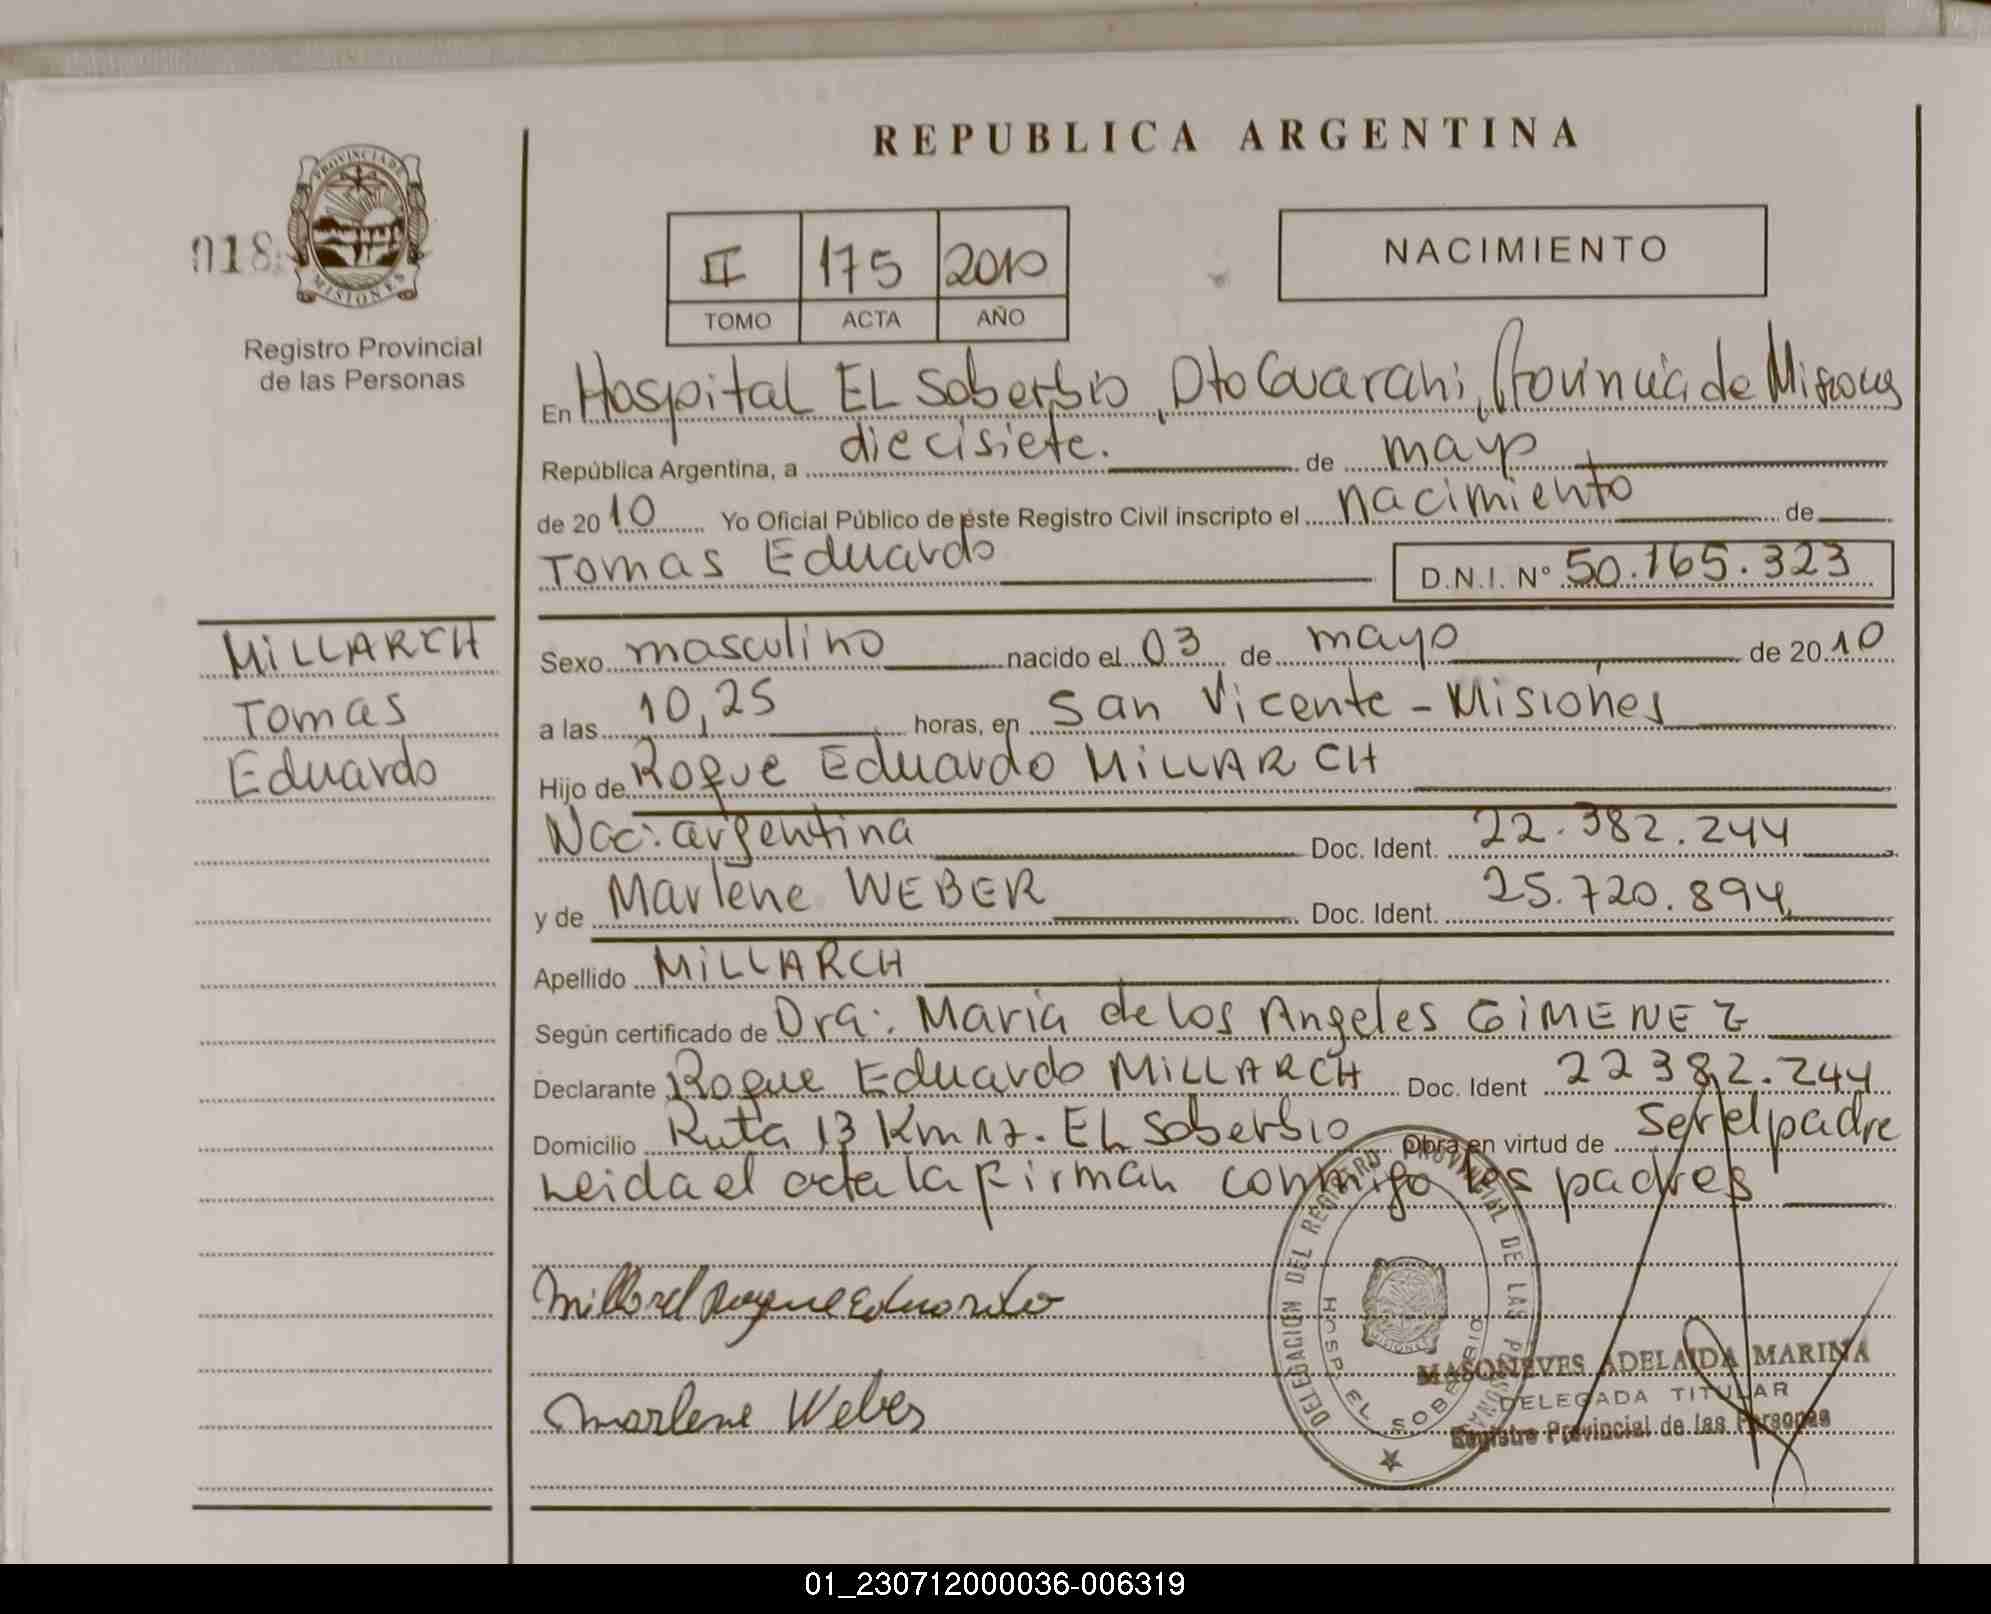 REPUBLICA ARGENTINA
018
PROVINCIA DE
MISIONES
Registro Provincial
de las Personas
II 175 2010
TOMO ACTA AÑO
NACIMIENTO
En Hospital EL Soberbio, Dto Guarani, Provincia de Misiones
República Argentina, a diecisiete. de mayo
de 20 10 Yo Oficial Público de éste Registro Civil inscripto el nacimiento de
Tomas Eduardo D.N.I. Nº 50.165.323
MiLLARCH
Tomas
Eduardo
Sexo masculino nacido el 03 de mayo de 20 10
a las 10,25 horas, en San Vicente - Misiones
Hijo de Roque Eduardo MiLLARCH
Nac: argentina Doc. Ident. 22.382.244
y de Marlene WEBER Doc. Ident. 25.720.894
Apellido MiLLARCH
Según certificado de Dra: Maria de los Angeles GiMENEZ
Declarante Roque Eduardo MiLLARCH Doc. Ident 22382.244
Domicilio Ruta 13 Km 17. EL Soberbio Obra en virtud de ser el padre
Leida el acta la firman conmigo los padres
Roque Eduardo
Marlene Weber
DELEGACION DEL REGISTRO PROVINCIAL DE LAS PERSONAS
HOSP. EL SOBERBIO
MASONEVES ADELAIDA MARINA
DELEGADA TITULAR
Registro Provincial de las Personas
01_230712000036-006319